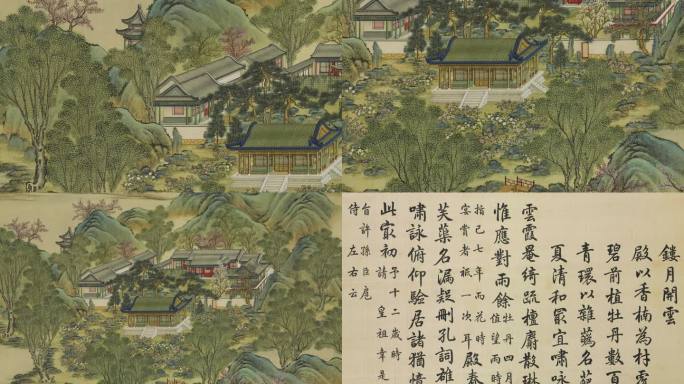 鏤月開雲
殿以香楠為材覆
碧前植牡丹數百
青環以雜蘤名葩
夏清和㝡宜嘯詠
雲霞罨綺疏檀麝散琳
惟應對雨餘牡丹四月值望雨時
指已七年而花時宴賞者祇一次耳殿春
芙蕖名漏疑刪孔詞雄
嘯詠俯仰驗居諸猶憶
此㝡初予十二歲時請皇祖幸是
自許孫臣扈侍左右云